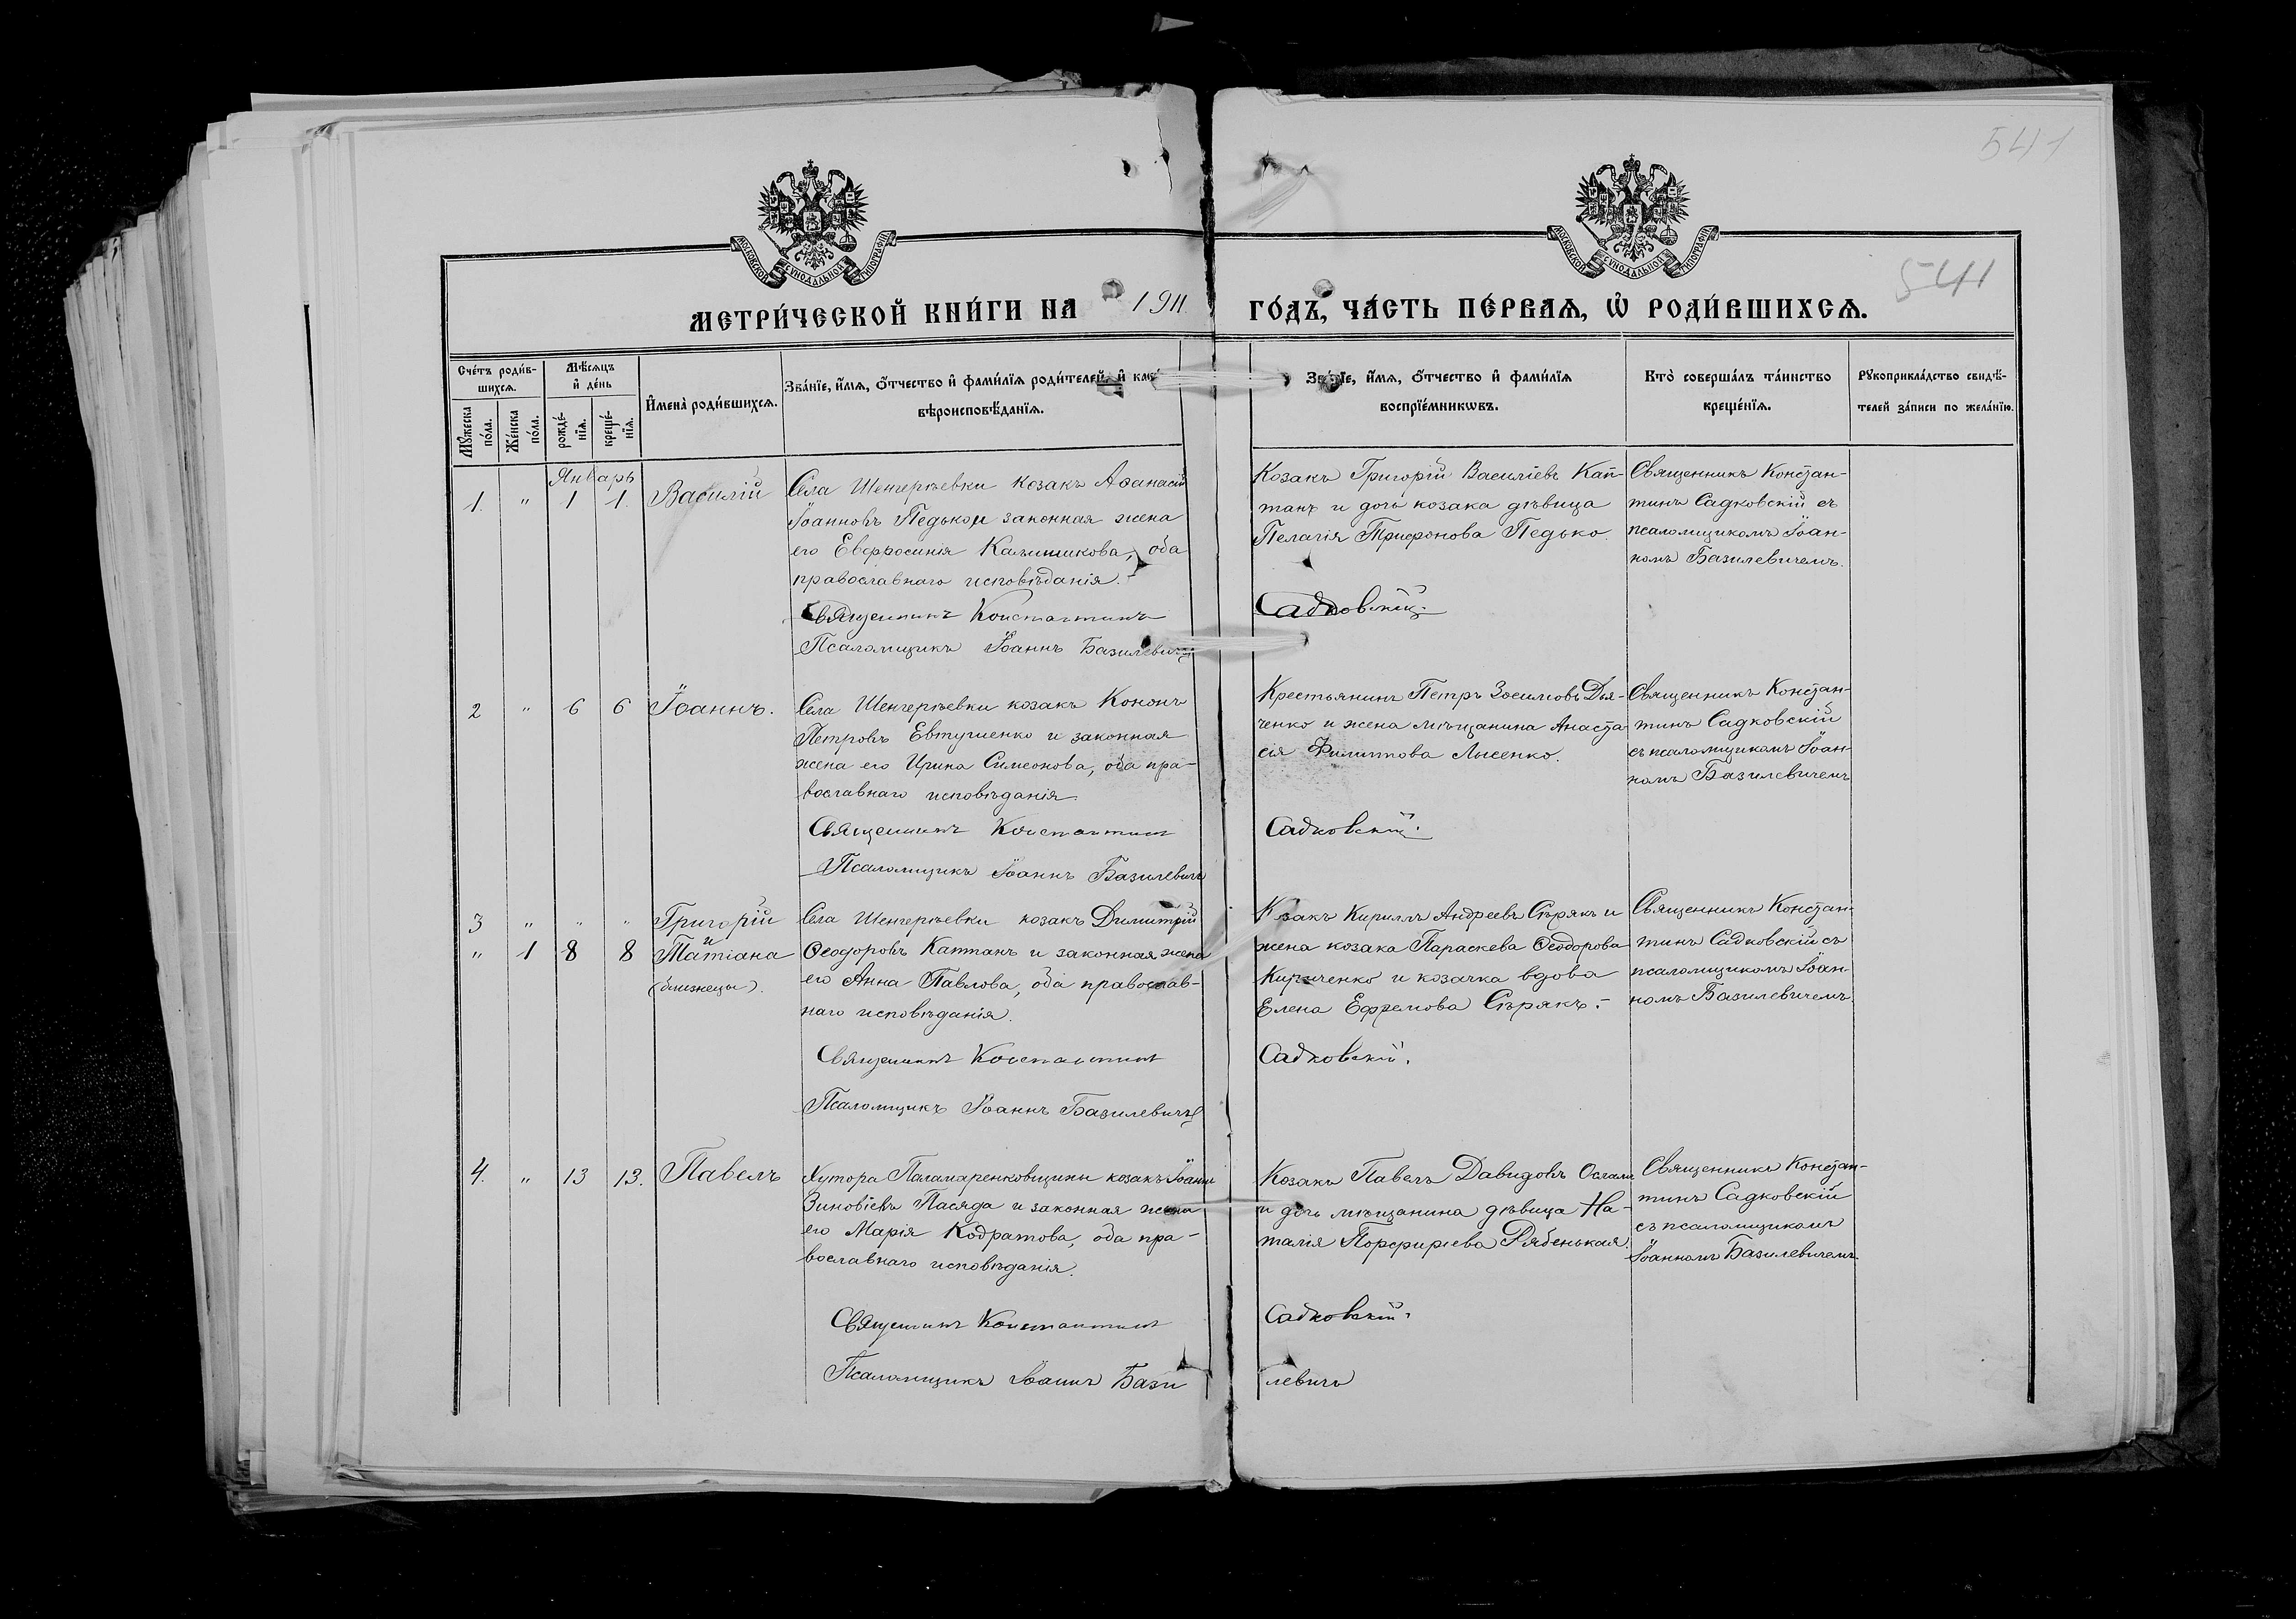 541
МОСКОВСКОЙ СѴНОДАЛЬНОЙ ТИПОГРАФІИ
МОСКОВСКОЙ СѴНОДАЛЬНОЙ ТИПОГРАФІИ
541
МЕТРИ́ЧЕСКОЙ КНИ́ГИ НА 1911
ГО́ДЪ, ЧА́СТЬ ПЕ́РВАѦ, Ѡ҆ РОДИ́ВШИХСѦ.
Сче́тъ роди́в-
шихсѧ.
Мꙋ́жеска по́ла.
Же́нска по́ла.
Мѣ́сѧцъ
и҆ де́нь
рожде́-
нїѧ.
креще́-
нїѧ.
И҆мена̀ роди́вшихсѧ.
Зва́нїе, и҆́мѧ, ѻ҆́тчество и҆ фамѝлїѧ роди́телей, и҆
вѣроисповѣ́данїѧ.
Зва́нїе, и҆́мѧ, ѻ҆́тчество и҆ фамѝлїѧ
воспрїе́мникѡвъ.
Кто̀ соверша́лъ та́инство
креще́нїѧ.
Рꙋкоприкла́дство свидѣ́-
телей за́писи по жела́нїю.
Январь
1. " 1 1. Василій
Села Шенгерѣевки козакъ Аѳанасій
Іоанновъ Педько и законная жена
его Евфросинія Калишикова, оба
православнаго исповѣданія.
Священникъ Константинъ
Псаломщикъ Іоаннъ Базилевичъ
Козакъ Григорій Василіевъ Кап-
танъ и дочь козака дѣвица
Пелагія Трифонова Педько.
Садковскій.
Священникъ Констан-
тинъ Садковскій съ
псаломщикомъ Іоан-
номъ Базилевичемъ.
2 " 6 6 Іоаннъ.
Села Шенгерѣевки козакъ Кононъ
Петровъ Евтушенко и законная
жена его Ирина Симеонова, оба пра-
вославнаго исповѣданія.
Священникъ Константинъ
Псаломщикъ Іоаннъ Базилевичъ
Крестьянинъ Петръ Зосимовъ Дья-
ченко и жена мѣщанина Анаста
сія Филиппова Лысенко.
Садковскій.
Священникъ Констан-
тинъ Садковскій
съ псаломщикомъ Іоан-
номъ Базилевичемъ
3 " " " Григорій
и
" 1 8 8 Татіана
(близнецы).
Села Шенгерѣевки козакъ Димитрій
Ѳеодоровъ Каптанъ и законная жена
его Анна Павлова, оба православ-
наго исповѣданія.
Священникъ Константинъ
Псаломщикъ Іоаннъ Базилевичъ
Козакъ Кириллъ Андреевъ Сѣрякъ и
жена козака Параскева Ѳеодорова
Кириченко и козачка вдова
Елена Ефремова Сѣрякъ.
Садковскій.
Священникъ Констан-
тинъ Садковскій съ
псаломщикомъ Іоан-
номъ Базилевичемъ.
4. " 13 13. Павелъ
Хутора Паламаренковщины козакъ Іоаннъ
Зиновіевъ Пасяда и законная жена
его Марія Кодратова, оба пра-
вославнаго исповѣданія.
Священникъ Константинъ
Псаломщикъ Іоаннъ Бази
Козакъ Павелъ Давидовъ
и дочь мѣщанина дѣвица На-
талія Порфиріева Рябенькая.
Садковскій.
левичъ
Священникъ Констан-
тинъ Садковскій
съ псаломщикомъ
Іоанномъ Базилевичемъ.